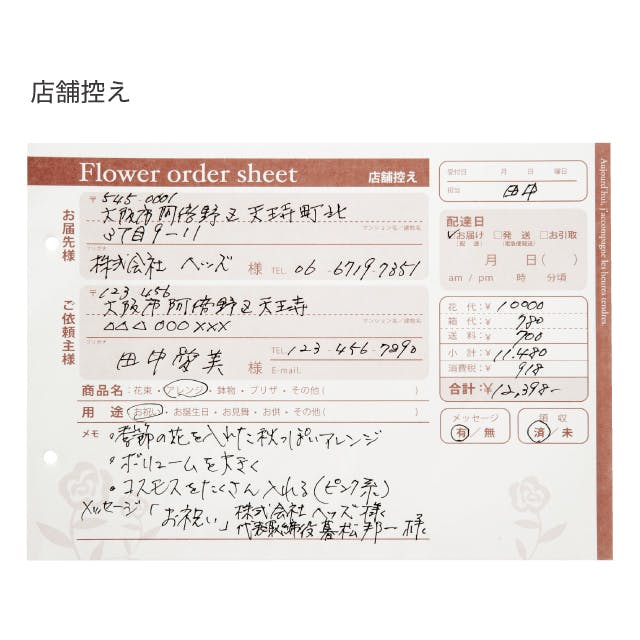 店舗控え
Flower order sheet 店舗控え
お届先様
〒545-0001
大阪市阿倍野区天王寺町北
3丁目9-11
マンション名/建物名
フリガナ
株式会社 ヘッズ 様 TEL. 06-6719-7351
ご依頼主様
〒123-456
大阪市阿倍野区天王寺
△△△ 000 xxx
マンション名/建物名
フリガナ
田中愛美 様 TEL. 123-456-7890
E-mail.
商品名:花束・アレンジ・鉢物・プリザ・その他( )
用途 お祝い・お誕生日・お見舞・お供・その他( )
メモ ・季節の花を入れた秋っぽいアレンジ
・ボリュームを大きく
・コスモスをたくさん入れる(ピンク系)
メッセージ「お祝い」株式会社ヘッズ様
代表取締役 暮松邦一様
受付日 月 日 曜日
担当 田中
配達日
✓お届け □発 送 □お引取
(配 達) (宅急便発送)
月 日( )
am / pm 時 分頃
花 代:¥ 10000
箱 代:¥ 780
送 料:¥ 700
小 計:¥ 11.480
消費税:¥ 918
合計:¥ 12,398-
メッセージ
有/無
領 収
済/未
Aujourd'hui, j'accompagne les heures tendres.